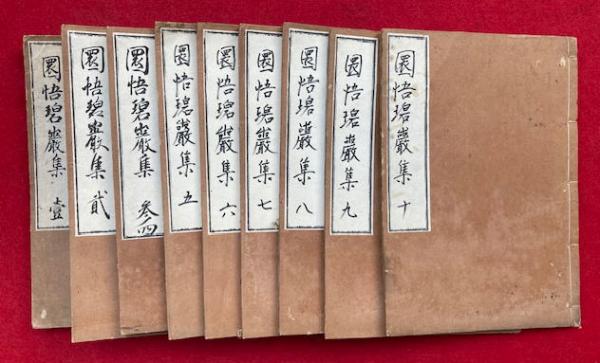 圜悟碧巖集 壹
圜悟碧巖集 貳
圜悟碧巖集 参四
圜悟碧巖集 五
圜悟碧巖集 六
圜悟碧巖集 七
圜悟碧巖集 八
圜悟碧巖集 九
圜悟碧巖集 十